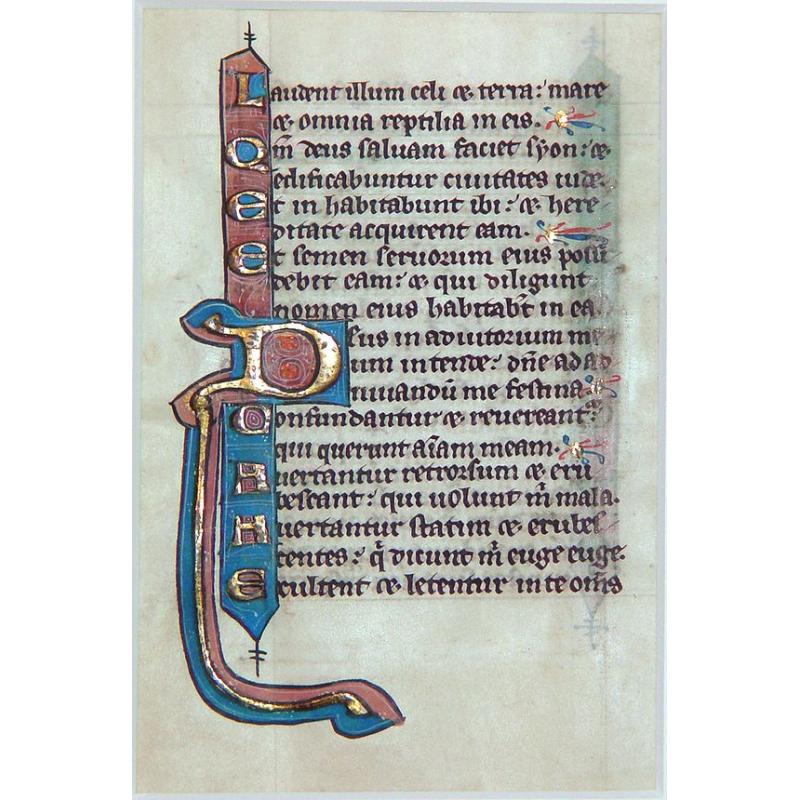 Laudent illum celi & terra: mare
& omnia reptilia in eis.
Qm̄ deus saluam faciet syon: &
edificabuntur ciuitates iude.
Et in habitabunt ibi: & here
ditate acquirent eam.
Et semen seruorum eius possi
debit eam: & qui diligunt
nomen eius habitabt̄ in ea
Deus in adiutorium me
um intende: dn̄e ad ad
iuuandū me festina.
Confundantur & reuereant̄:
qui querunt aīam meam.
Auertantur retrorsum & eru
bescant: qui uolunt m̄ mala.
Auertantur statim & erubes
centes: q̄ dicunt m̄ euge euge.
Exultent & letentur in te om̄s